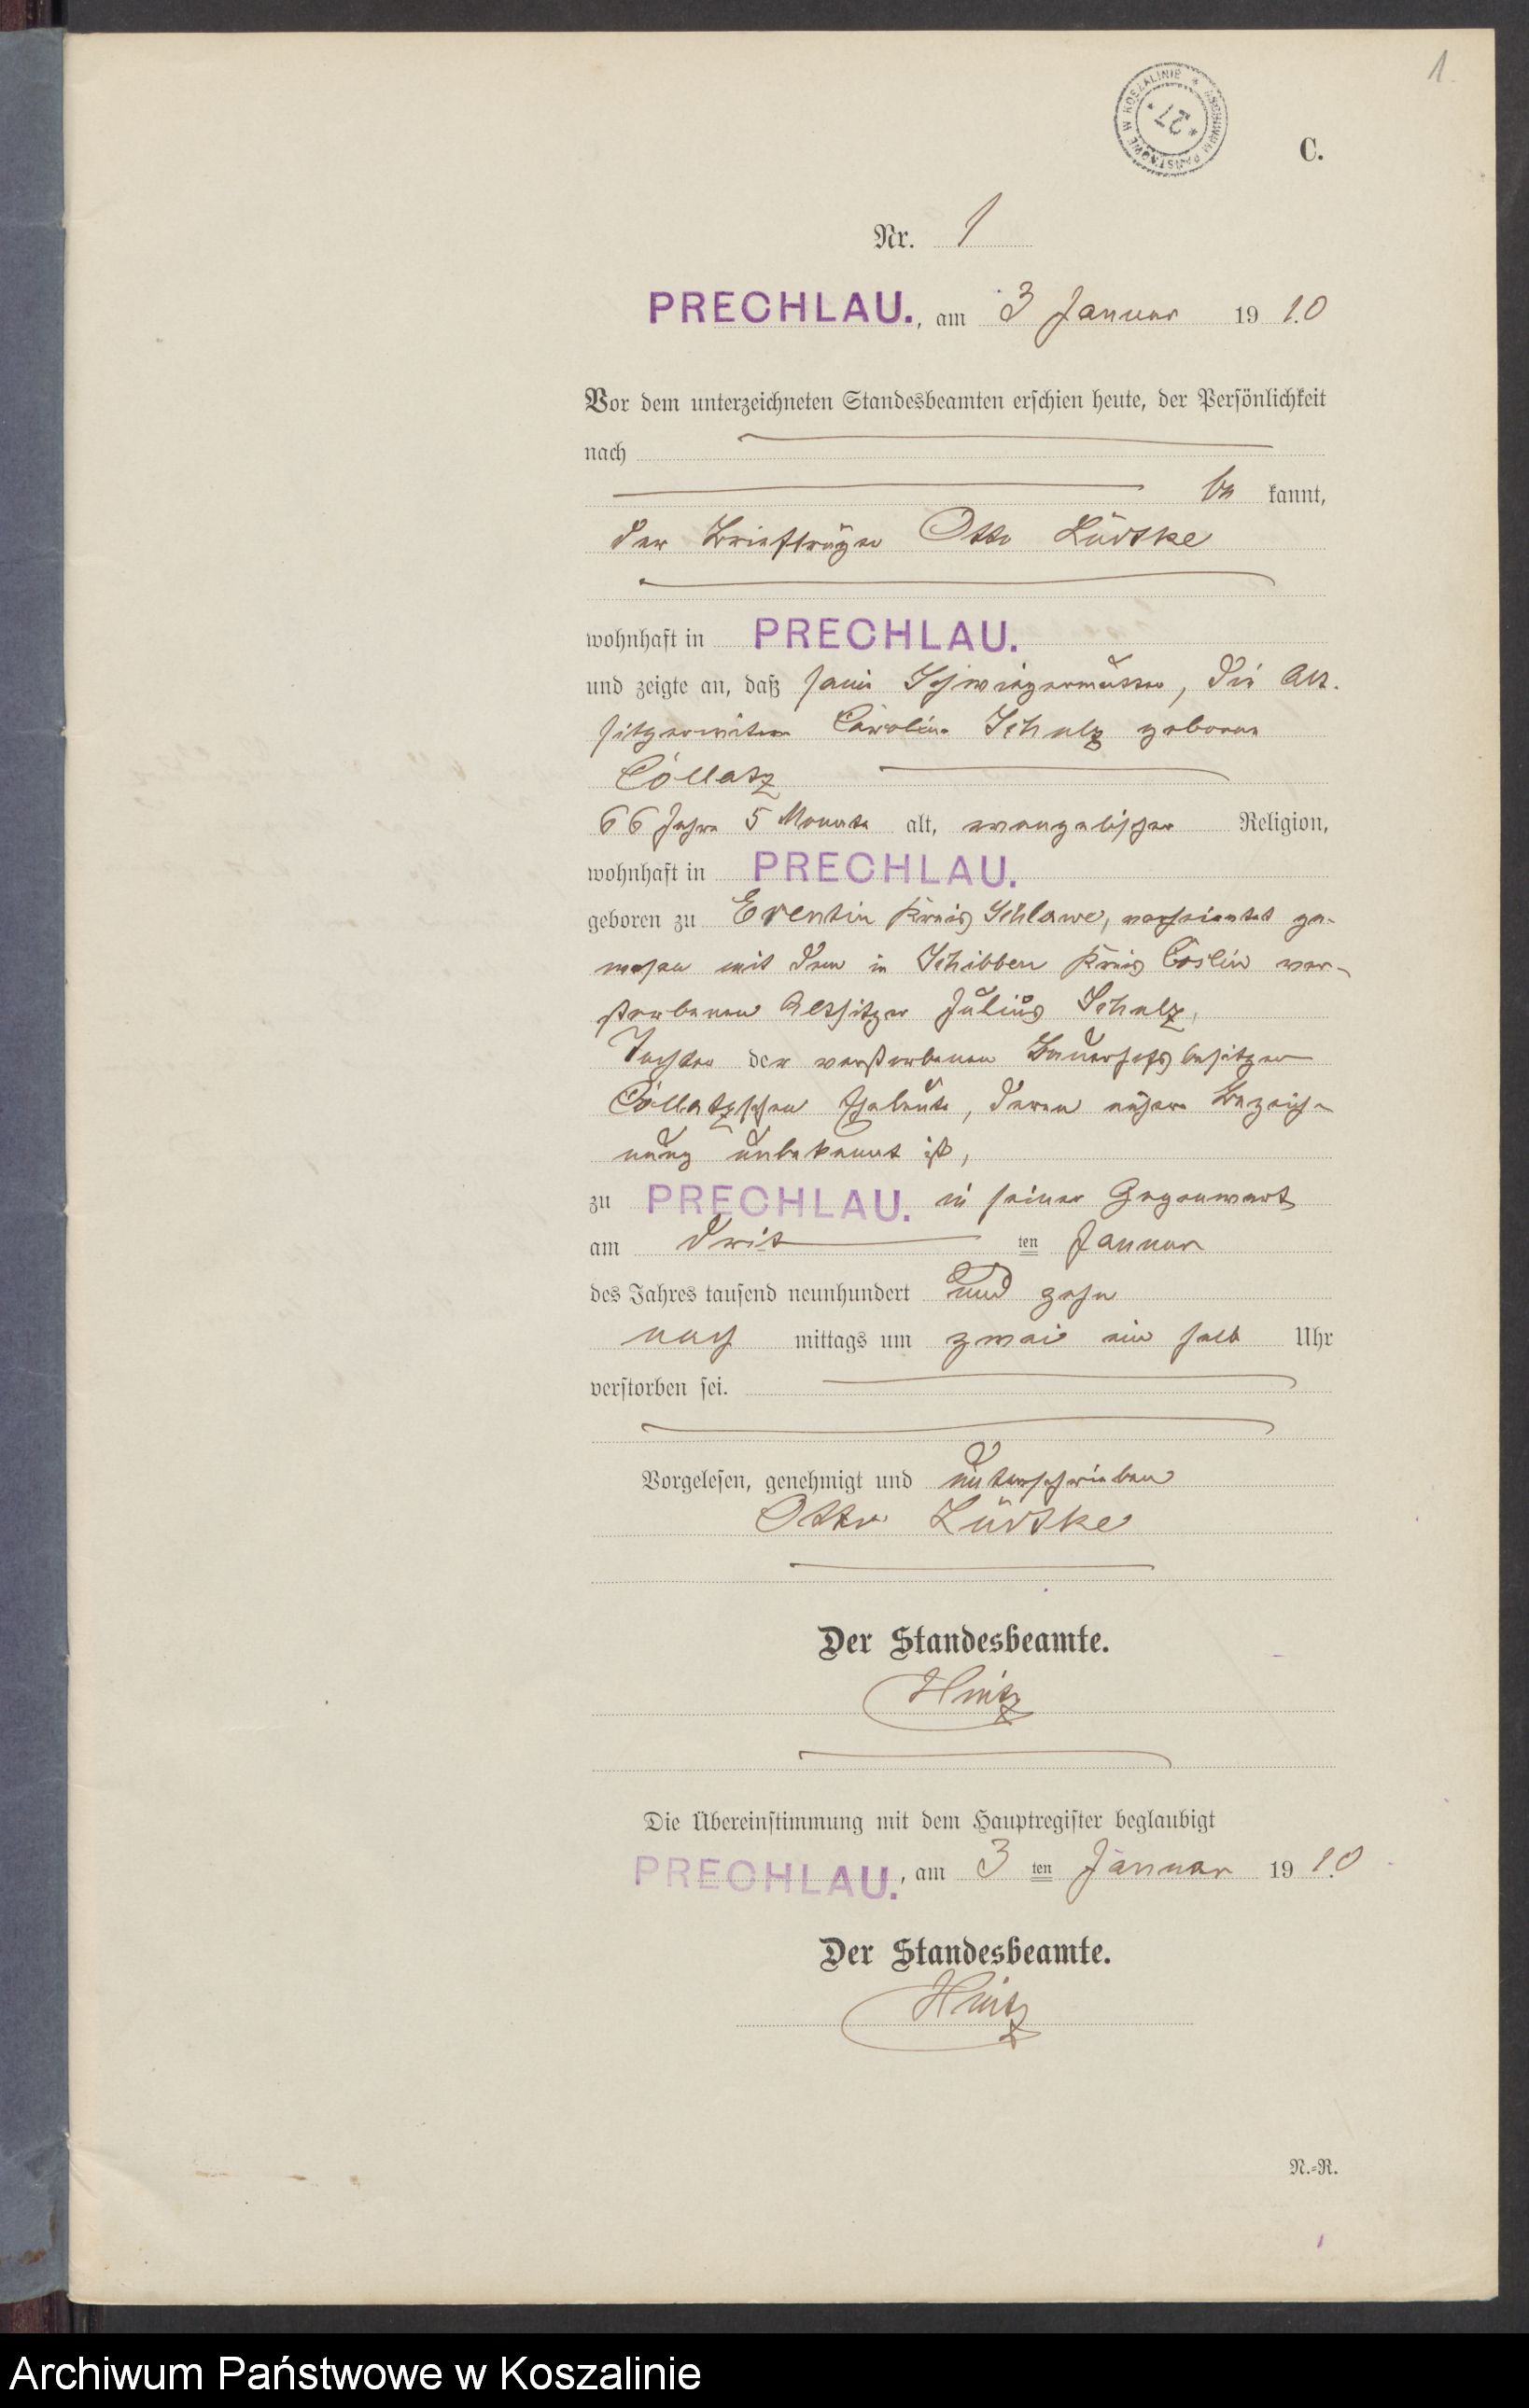 1.
ARCHIWUM PAŃSTWOWE W KOSZALINIE * 27 *
C.
Nr. 1
PRECHLAU., am 3 Januar 1910
Vor dem unterzeichneten Standesbeamten erschien heute, der Persönlichkeit
nach
be kannt,
der Briefträger Otto Lüdtke
wohnhaft in PRECHLAU.
und zeigte an, daß seine Schwiegermutter, die Alt-
sitzerwitwe Caroline Schulz geborene
Collatz
66 Jahre 5 Monate alt, evangelischer Religion,
wohnhaft in PRECHLAU.
geboren zu Eventin Kreis Schlawe, verheiratet ge-
wesen mit dem in Schibben Kreis Cöslin ver-
storbenen Altsitzer Julius Schulz,
Tochter der verstorbenen Bauerhofsbesitzer
Collatzschen Eheleute, deren nähere Bezeich-
nung unbekannt ist,
zu PRECHLAU. in seiner Gegenwart
am drit ten Januar
des Jahres tausend neunhundert und zehn
nach mittags um zwei ein halb Uhr
verstorben sei.
Vorgelesen, genehmigt und unterschrieben
Otto Lüdtke
Der Standesbeamte.
Hintz
Die Übereinstimmung mit dem Hauptregister beglaubigt
PRECHLAU., am 3 ten Januar 1910
Der Standesbeamte.
Hintz
N.=R.
Archiwum Państwowe w Koszalinie